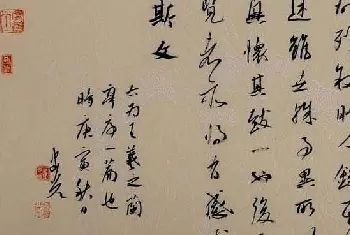 列叙時人錄其
述雖世殊事異所
興懷其致一也後
覽者亦將有感
斯文
為王羲之蘭
亭序一篇也
時庚寅秋日